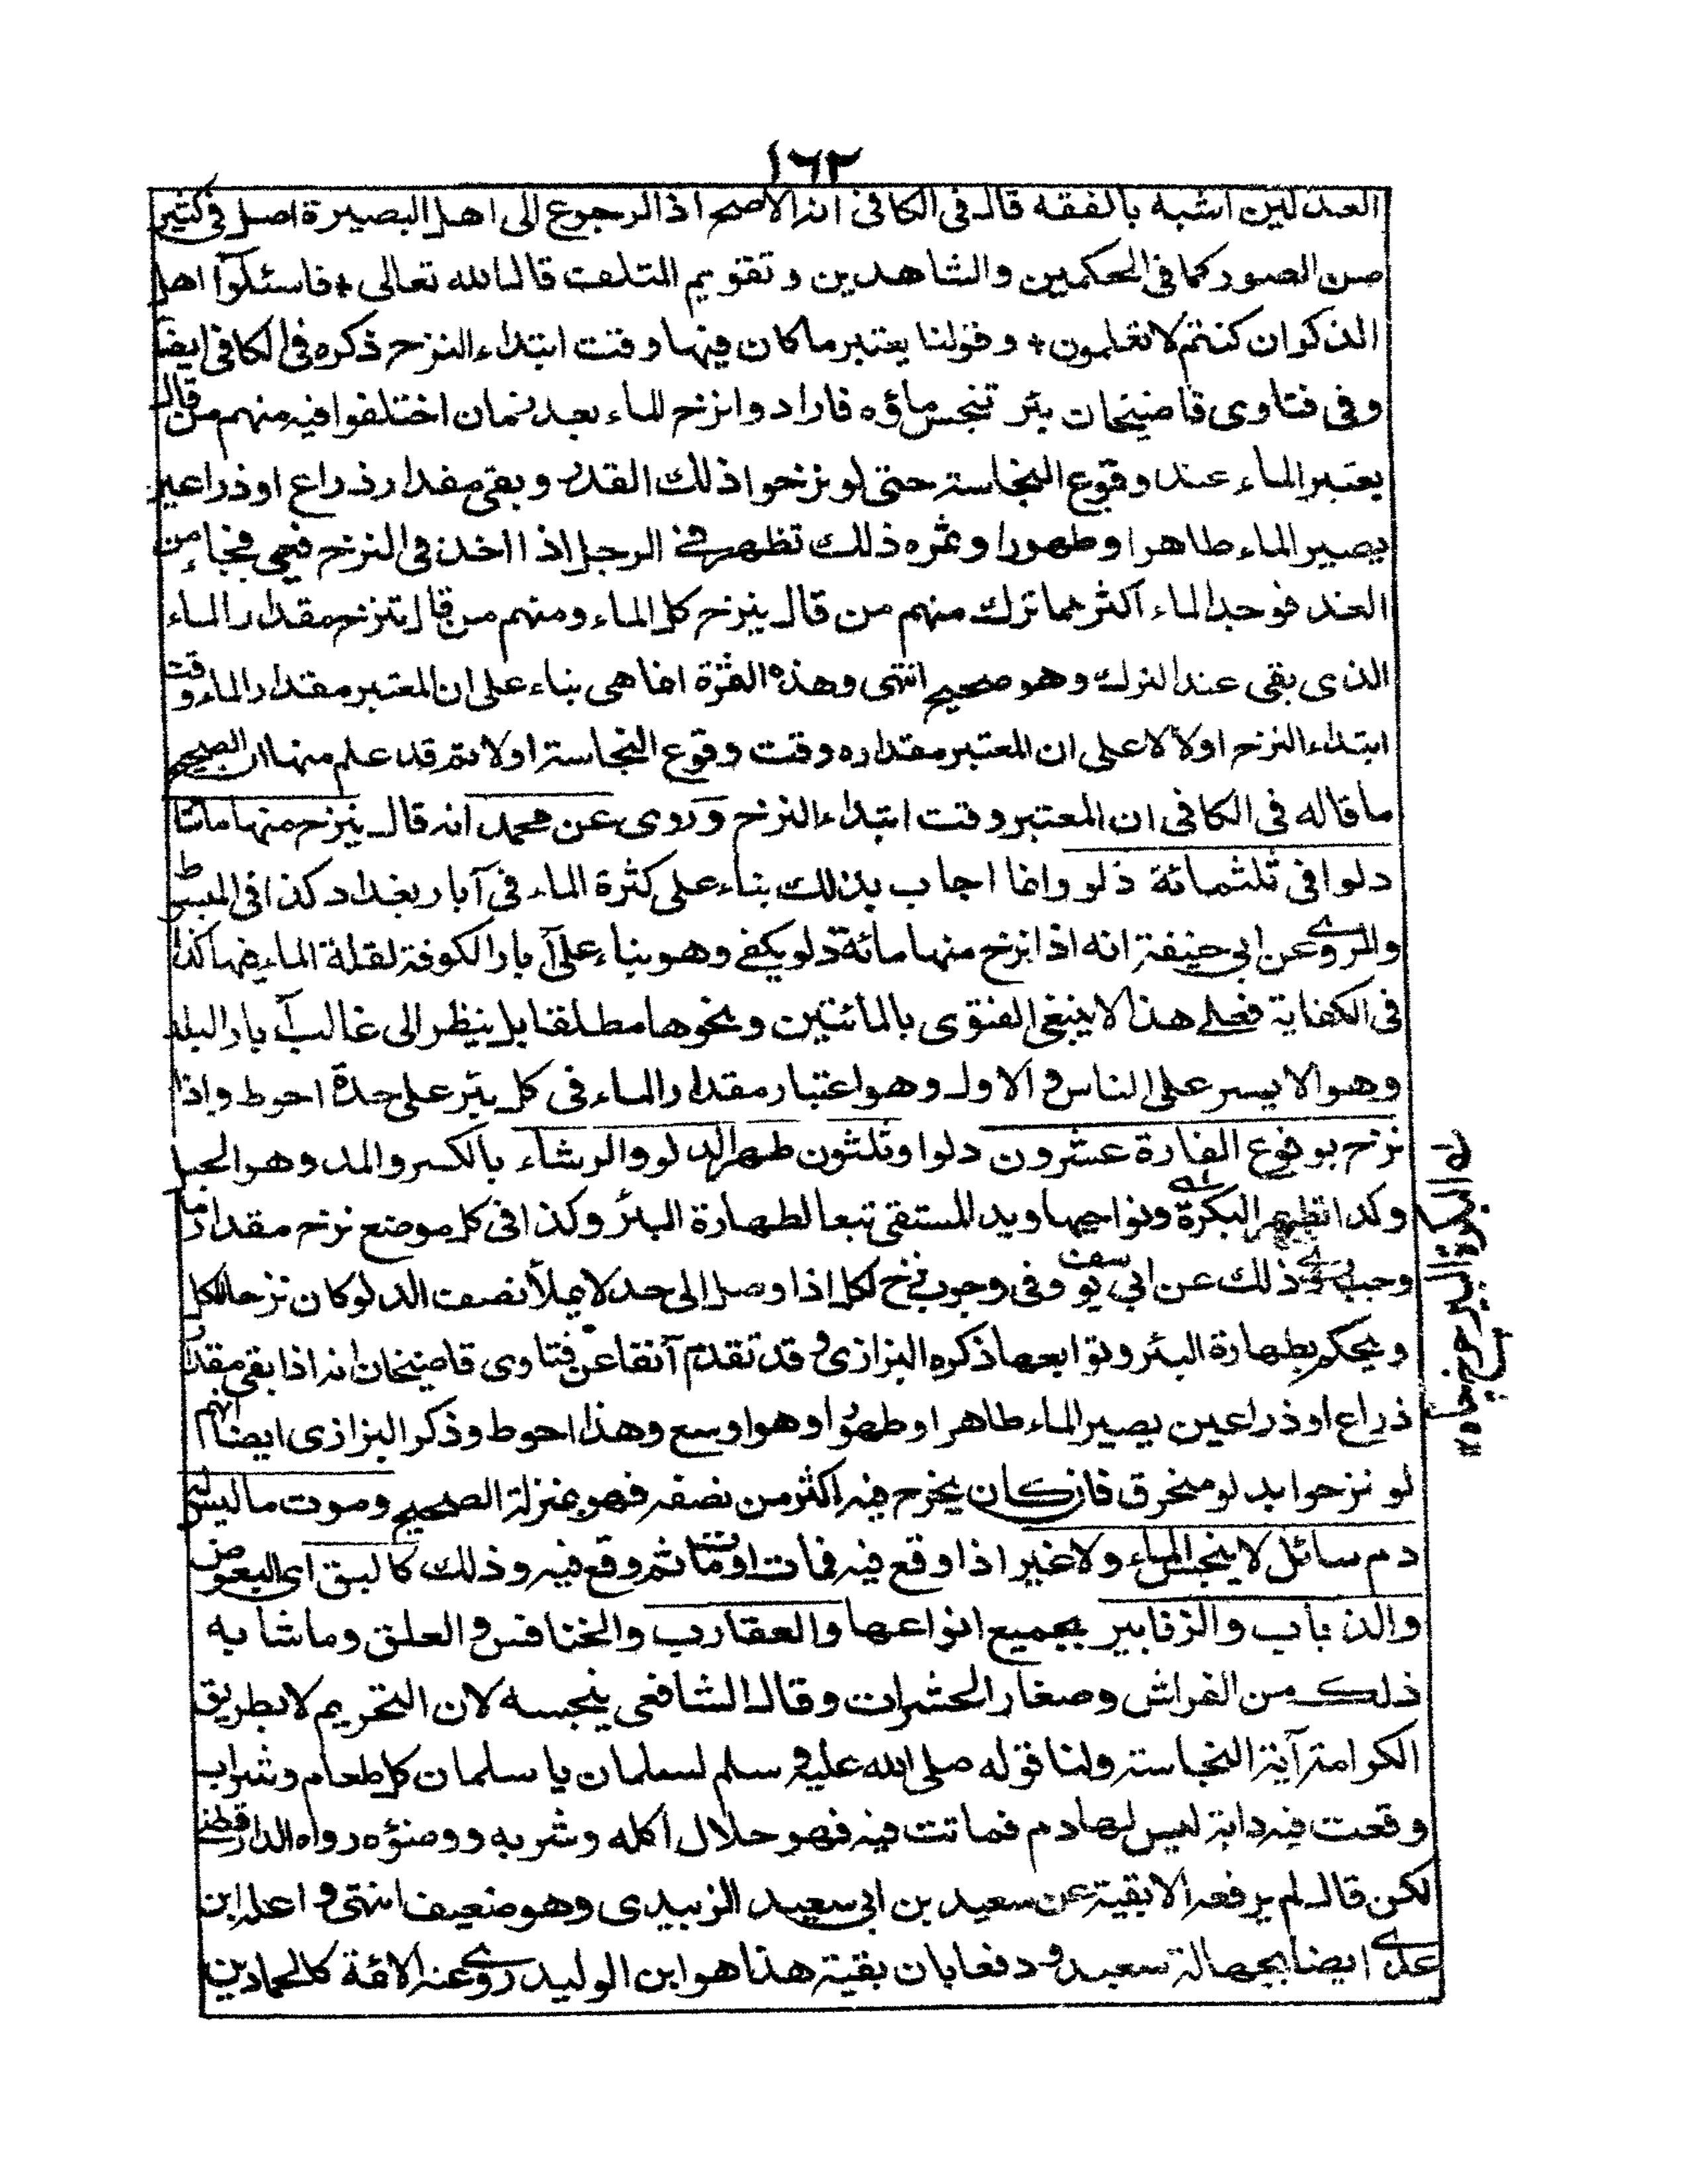 ١٦٢
العدلين اشبه بالفقه قال فى الكافى انه الاصح اذ الرجوع الى اهل البصيرة اصل فى كثير
من الصور كما فى الحكمين والشاهدين وتقويم المتلف قال الله تعالى + فاسئلوآ اهل
الذكر ان كنتم لا تعلمون + وقولنا يعتبر ما كان فيها وقت ابتداء النزح ذكره فى الكافى ايضا
وفى فتاوى قاضيخان بئر تنجس ماؤه فارادوا نزح الماء بعد زمان اختلفوا فيه منهم من قال
يعتبر الماء عند وقوع النجاسة حتى لو نزحوا ذلك القدر وبقى مقدار ذراع او ذراعين
يصير الماء طاهرا وطهورا وثمره ذلك تظهر فى الرجل اذا اخذ فى النزح فيحى فجاء من
الغد فوجد الماء اكثر مما ترك منهم من قال ينزح كل الماء ومنهم من قال تنزح مقدار الماء
الذى بقى عند الترك وهو صحيح انتهى وهذه الثمرة انما هى بناء على ان المعتبر مقدار الماء وقت
ابتداء النزح اولا لا على ان المعتبر مقداره وقت وقوع النجاسة اولا ثم قد علم منها ان الصحيح
ما قاله فى الكافى ان المعتبر وقت ابتداء النزح وروى عن محمد انه قال ينزح منها مائتا
دلو الى ثلثمائة دلو وانما اجاب بذلك بناء على كثرة الماء فى آبار بغداد كذا فى المبسوط
والمروى عن ابى حنيفة انه اذا نزح منها مائة دلو يكفى وهو بناء على آبار الكوفة لقلة الماء فيها كذا
فى الكفاية فعلى هذا لا ينبغى الفتوى بالمائتين ونحوها مطلقا بل ينظر الى غالب آبار البلد
وهو الايسر على الناس والاول وهو اعتبار مقدار الماء فى كل بئر على حدة احوط واذا
نزح بوقوع الفارة عشرون دلوا وثلثون طهر الدلو والرشاء بالكسر والمد وهو الحبل
وكذا تطهر البكرة ونواحيها ويد المستقى تبعا لطهارة البئر وكذا فى كل موضع نزح مقدار ما
وجب روى ذلك عن ابى يوسف وفى وجوب نزح الكل اذا وصل الى حد لا يملأ نصف الدلو كان نزحا للكل
ويحكم بطهارة البئر وتوابعها ذكره البزازى وقد تقدم آنفا عن فتاوى قاضيخان انه اذا بقى مقدار
ذراع او ذراعين يصير الماء طاهرا وطهورا وهو اوسع وهذا احوط وذكر البزازى ايضا انهم
لو نزحوا بدلو منخرق فان كان يخرج فيه اكثر من نصفه فهو بمنزلة الصحيح وموت ما ليس له
دم سائل لا ينجس الماء ولا غيره اذا وقع فيه فمات او مات ثم وقع فيه وذلك كالبق اى البعوض
والذباب والزنابير بجميع انواعها والعقارب والخنافس والعلق وما شابه
ذلك من الفراش وصغار الحشرات وقال الشافعى ينجسه لان التحريم لا بطريق
الكرامة آية النجاسة ولنا قوله صلى الله عليه وسلم لسلمان يا سلمان كل طعام وشراب
وقعت فيه دابة ليس لها دم فماتت فيه فهو حلال اكله وشربه ووضوؤه رواه الدارقطنى
لكن قال لم يرفعه الا بقية عن سعيد بن ابى سعيد الزبيدى وهو ضعيف انتهى واعله ابن
عدى ايضا بجهالة سعيد ودفعا بان بقية هذا هو ابن الوليد روى عنه الائمة كالحمادين